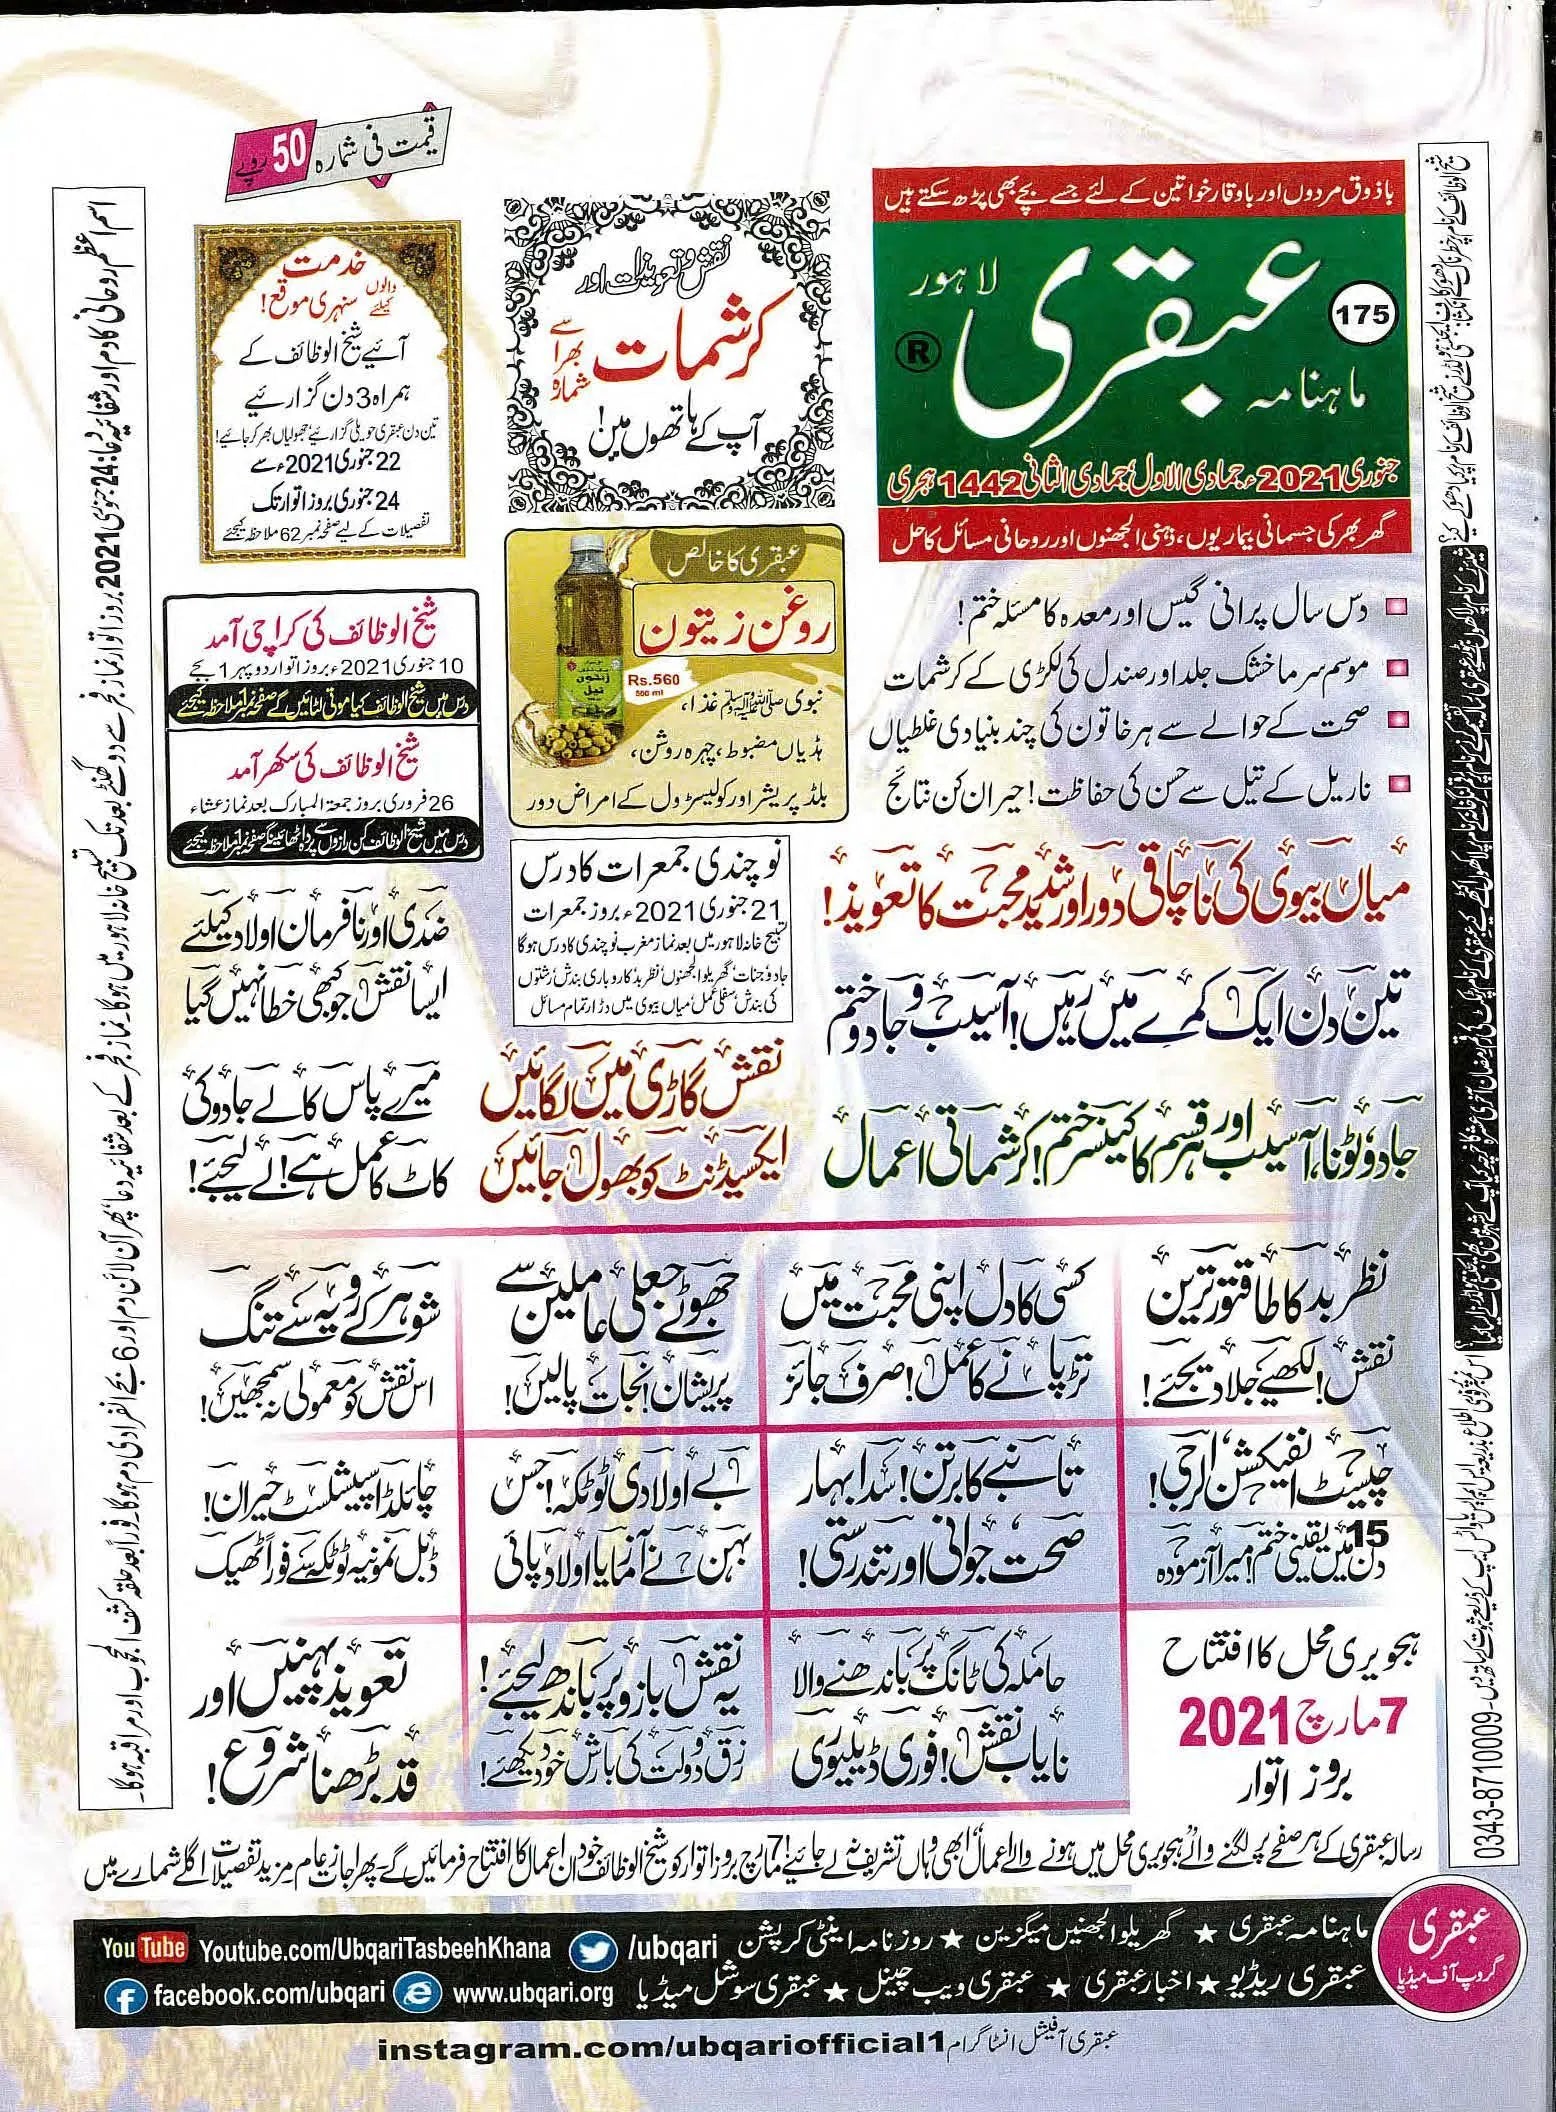 قیمت فی شمارہ 50 روپے
باذوق مردوں اور باوقار خواتین کے لئے جسے بچے بھی پڑھ سکتے ہیں
ماہنامہ عبقری لاہور
175
®
جنوری 2021ء، جمادی الاول، جمادی الثانی 1442 ہجری
گھر بھر کی جسمانی بیماریوں، ذہنی الجھنوں اور روحانی مسائل کا حل
نقش و تعویذات اور
کرشمات سے بھرا شمارہ
آپ کے ہاتھوں میں!
خدمت والوں کیلئے سنہری موقع!
آئیے شیخ الوظائف کے
ہمراہ 3 دن گزارئیے
تین دن عبقری حویلی گزارئیے جھولیاں بھر کر جائیے!
22 جنوری 2021ء سے
24 جنوری بروز اتوار تک
تفصیلات کے لیے صفحہ نمبر 62 ملاحظہ کیجئے
عبقری کا خالص
روغن زیتون
Rs.560
500 ml
نبوی ﷺ غذا،
ہڈیاں مضبوط، چہرہ روشن،
بلڈ پریشر اور کولیسٹرول کے امراض دور
شیخ الوظائف کی کراچی آمد
10 جنوری 2021ء بروز اتوار دوپہر 1 بجے
درس میں شیخ الوظائف کیا موتی لٹائیں گے صفحہ نمبر 1 ملاحظہ کیجئے
شیخ الوظائف کی سکھر آمد
26 فروری بروز جمعۃ المبارک بعد نماز عشاء
درس میں شیخ الوظائف کن رازوں سے پردہ اٹھائینگے صفحہ نمبر 1 ملاحظہ کیجئے
دس سال پرانی گیس اور معدہ کا مسئلہ ختم!
موسم سرما خشک جلد اور صندل کی لکڑی کے کرشمات
صحت کے حوالے سے ہر خاتون کی چند بنیادی غلطیاں
ناریل کے تیل سے حسن کی حفاظت! حیران کن نتائج
نوچندی جمعرات کا درس
21 جنوری 2021ء بروز جمعرات
تسبیح خانہ لاہور میں بعد نماز مغرب نوچندی کا درس ہوگا
جادو جنات، گھریلو الجھنوں، نظربد، کاروباری بندش، رشتوں
کی بندش، سفلی عمل، میاں بیوی میں دڑار تمام مسائل
میاں بیوی کی ناچاقی دور اور شدید محبت کا تعویذ!
تین دن ایک کمرے میں رہیں! آسیب و جادو ختم
جادو ٹونا، آسیب اور ہر قسم کا کینسر ختم! کرشماتی اعمال
ضدی اور نافرمان اولاد کیلئے
ایسا نقش جو کبھی خطا نہیں گیا
نقش گاڑی میں لگائیں
ایکسیڈنٹ کو بھول جائیں
میرے پاس کالے جادو کی
کاٹ کا عمل ہے! لے لیجئے!
نظر بد کا طاقتور ترین
نقش! لکھیے جلا دیجئے!
کسی کا دل اپنی محبت میں
تڑپانے کا عمل! صرف جائز
جھوٹے جعلی عاملین سے
پریشان! نجات پالیں!
شوہر کے رویہ سے تنگ
اس نقش کو معمولی نہ سمجھیں!
چیسٹ انفیکشن، الرجی!
15 دن میں یقینی ختم! میرا آزمودہ
تانبے کا برتن! سدا بہار
صحت، جوانی اور تندرستی!
بے اولادی ٹوٹکہ! جس
بہن نے آزمایا اولاد پائی
چائلڈ اسپیشلسٹ حیران!
ڈبل نمونیہ ٹوٹکہ سے فوراً ٹھیک
ہجویری محل کا افتتاح
7 مارچ 2021
بروز اتوار
حاملہ کی ٹانگ پر باندھنے والا
نایاب نقش! فوری ڈیلیوری
یہ نقش بازو پر باندھ لیجئے!
رزق و دولت کی بارش خود دیکھئے!
تعویذ پہنیں اور
قد بڑھنا شروع!
رسالہ عبقری کے ہر صفحے پر لگنے والے ہجویری محل میں ہونے والے اعمال، ابھی وہاں تشریف نہ لے جائیے! 7 مارچ بروز اتوار کو شیخ الوظائف خود ان اعمال کا افتتاح فرمائیں گے۔ پھر اجازت عام مزید تفصیلات اگلے شمارے میں
اسم اعظم روحانی کا دم اور شفائیہ دعا: 24 جنوری 2021 بروز اتوار نماز فجر سے دو گھنٹے بعد تک تسبیح خانہ لاہور میں ہوگا۔ نماز فجر کے بعد شفائیہ دعا، پھر آن لائن دم اور 6 بجے انفرادی دم ہوگا۔ فوراً بعد حلقہ کشف المحجوب اور مراقبہ ہوگا۔
0343-8710009
عبقری گروپ آف میڈیا
ماہنامہ عبقری ★ گھریلو الجھنیں میگزین ★ روزنامہ اینٹی کرپشن
عبقری ریڈیو ★ اخبار عبقری ★ عبقری ویب چینل ★ عبقری سوشل میڈیا
You Tube Youtube.com/UbqariTasbeehKhana /ubqari
facebook.com/ubqari www.ubqari.org
عبقری آفیشل انسٹاگرام instagram.com/ubqariofficial1